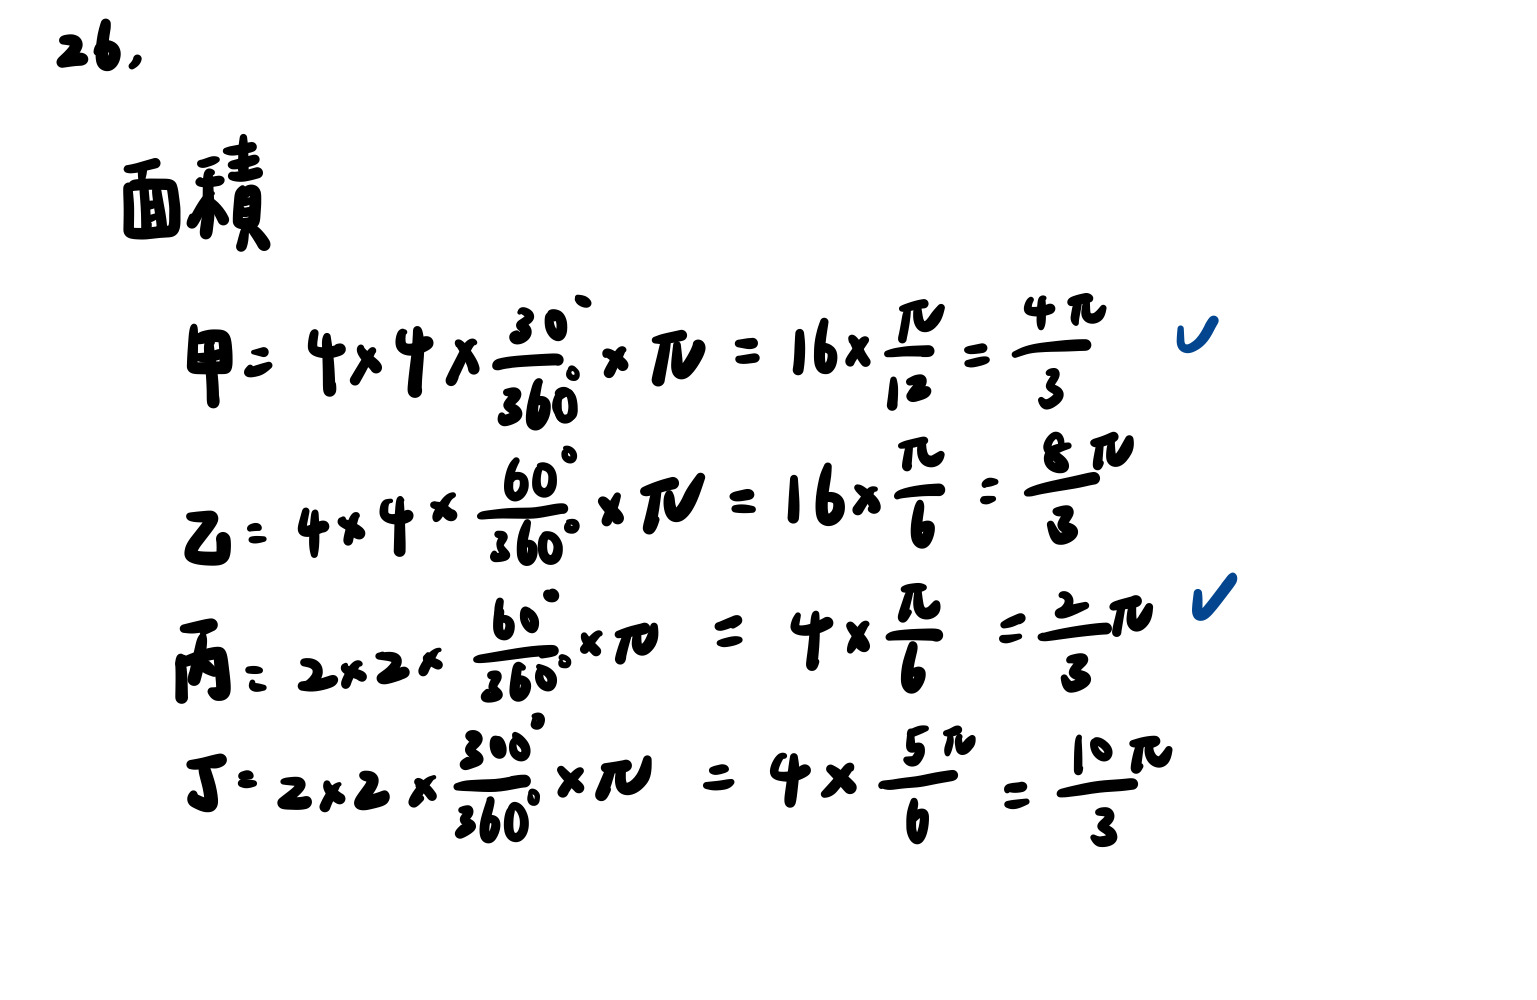 26.
面積
甲 = 4 × 4 × 30°/360° × π = 16 × π/12 = 4π/3 ✓
乙 = 4 × 4 × 60°/360° × π = 16 × π/6 = 8π/3
丙 = 2 × 2 × 60°/360° × π = 4 × π/6 = 2/3 π ✓
丁 = 2 × 2 × 300°/360° × π = 4 × 5π/6 = 10π/3